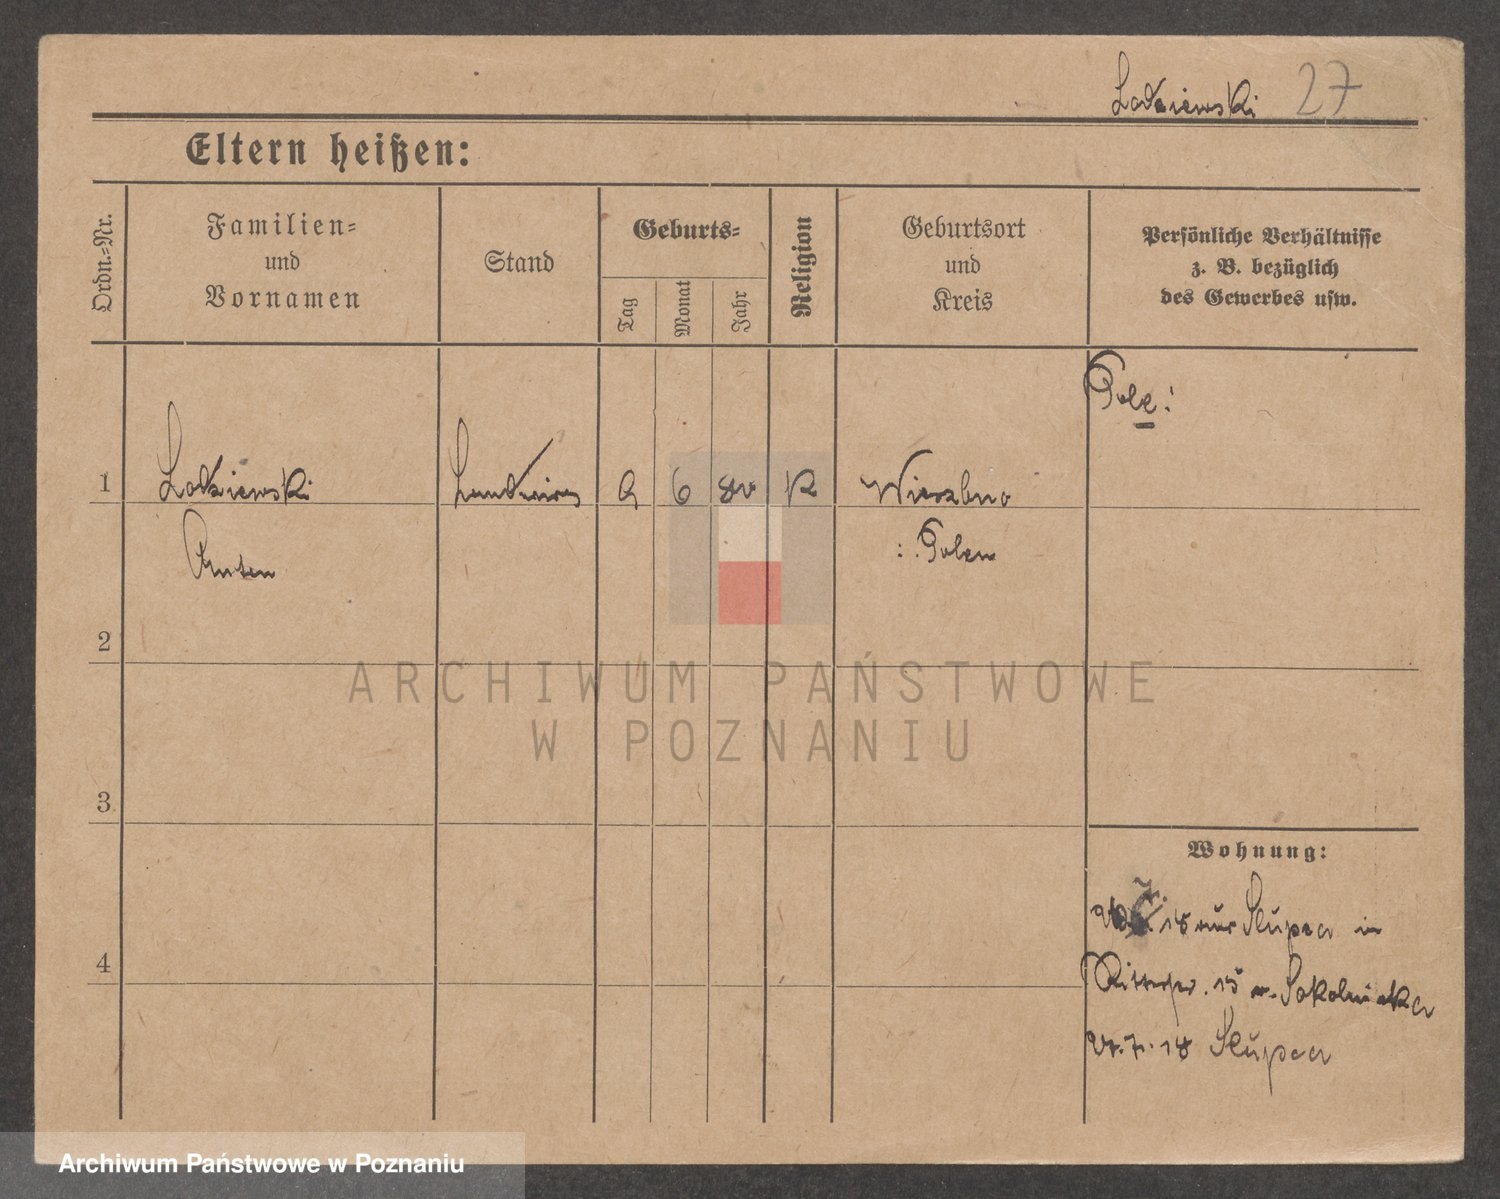 Lodziewski 27
Eltern heißen:
Ordn.-Nr.
Familien-
und
Vornamen
Stand
Geburts-
Tag
Monat
Jahr
Religion
Geburtsort
und
Kreis
Persönliche Verhältnisse
z. B. bezüglich
des Gewerbes usw.
Pole!
1 Lodziewski Landwirt 9 6 K Wierzbno
Anton : Polen
2
3
4
Wohnung:
18 aus Slupca in
Ritterstr. 15 Sokolnicka
27.7.18 Slupca
ARCHIWUM PAŃSTWOWE
W POZNANIU
Archiwum Państwowe w Poznaniu